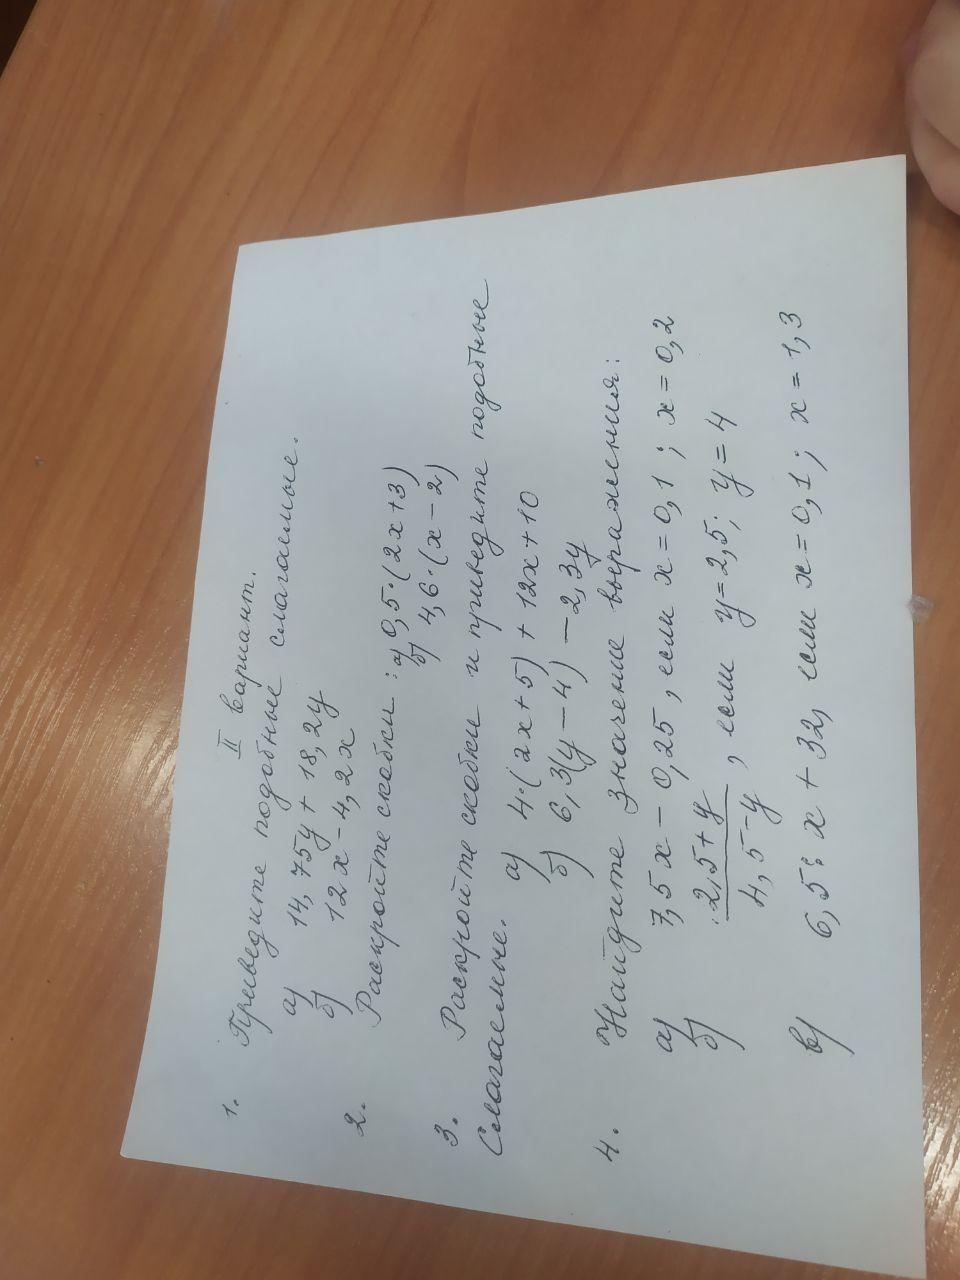 II вариант.
1. Приведите подобные слагаемые.
а) 14,75y + 18,2y
б) 12x - 4,2x
2. Раскройте скобки: а) 0,5·(2x+3)
б) 4,6·(x-2)
3. Раскройте скобки и приведите подобные
слагаемые. а) 4·(2x+5) + 12x + 10
б) 6,3(y-4) - 2,3y
4. Найдите значение выражения:
а) 7,5x - 0,25, если x=0,1; x=0,2
б) 2,5+y / 4,5-y, если y=2,5; y=4
в) 6,5:x + 32, если x=0,1; x=1,3